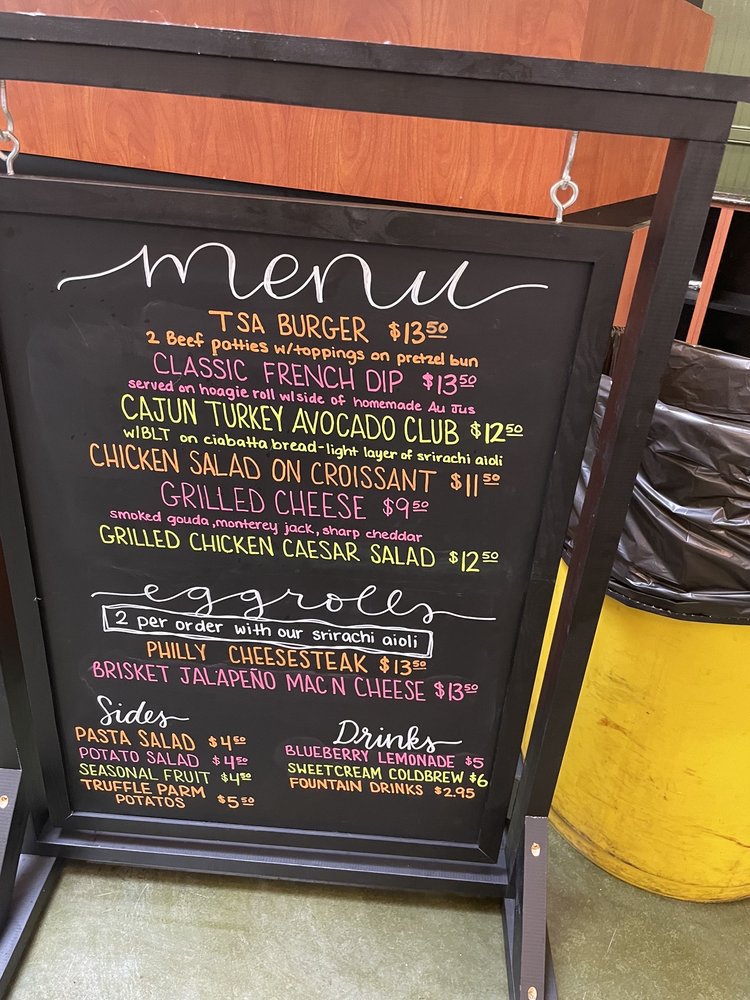 menu
TSA BURGER $13⁵⁰
2 Beef patties w/toppings on pretzel bun
CLASSIC FRENCH DIP $13⁵⁰
served on hoagie roll w/side of homemade Au Jus
CAJUN TURKEY AVOCADO CLUB $12⁵⁰
w/BLT on ciabatta bread-light layer of srirachi aioli
CHICKEN SALAD ON CROISSANT $11⁵⁰
GRILLED CHEESE $9⁵⁰
smoked gouda, monterey jack, sharp cheddar
GRILLED CHICKEN CAESAR SALAD $12⁵⁰
eggrolls
2 per order with our srirachi aioli
PHILLY CHEESESTEAK $13⁵⁰
BRISKET JALAPEÑO MAC N CHEESE $13⁵⁰
Sides
PASTA SALAD $4⁵⁰
POTATO SALAD $4⁵⁰
SEASONAL FRUIT $4⁵⁰
TRUFFLE PARM
POTATOS $5⁵⁰
Drinks
BLUEBERRY LEMONADE $5
SWEETCREAM COLDBREW $6
FOUNTAIN DRINKS $2.95